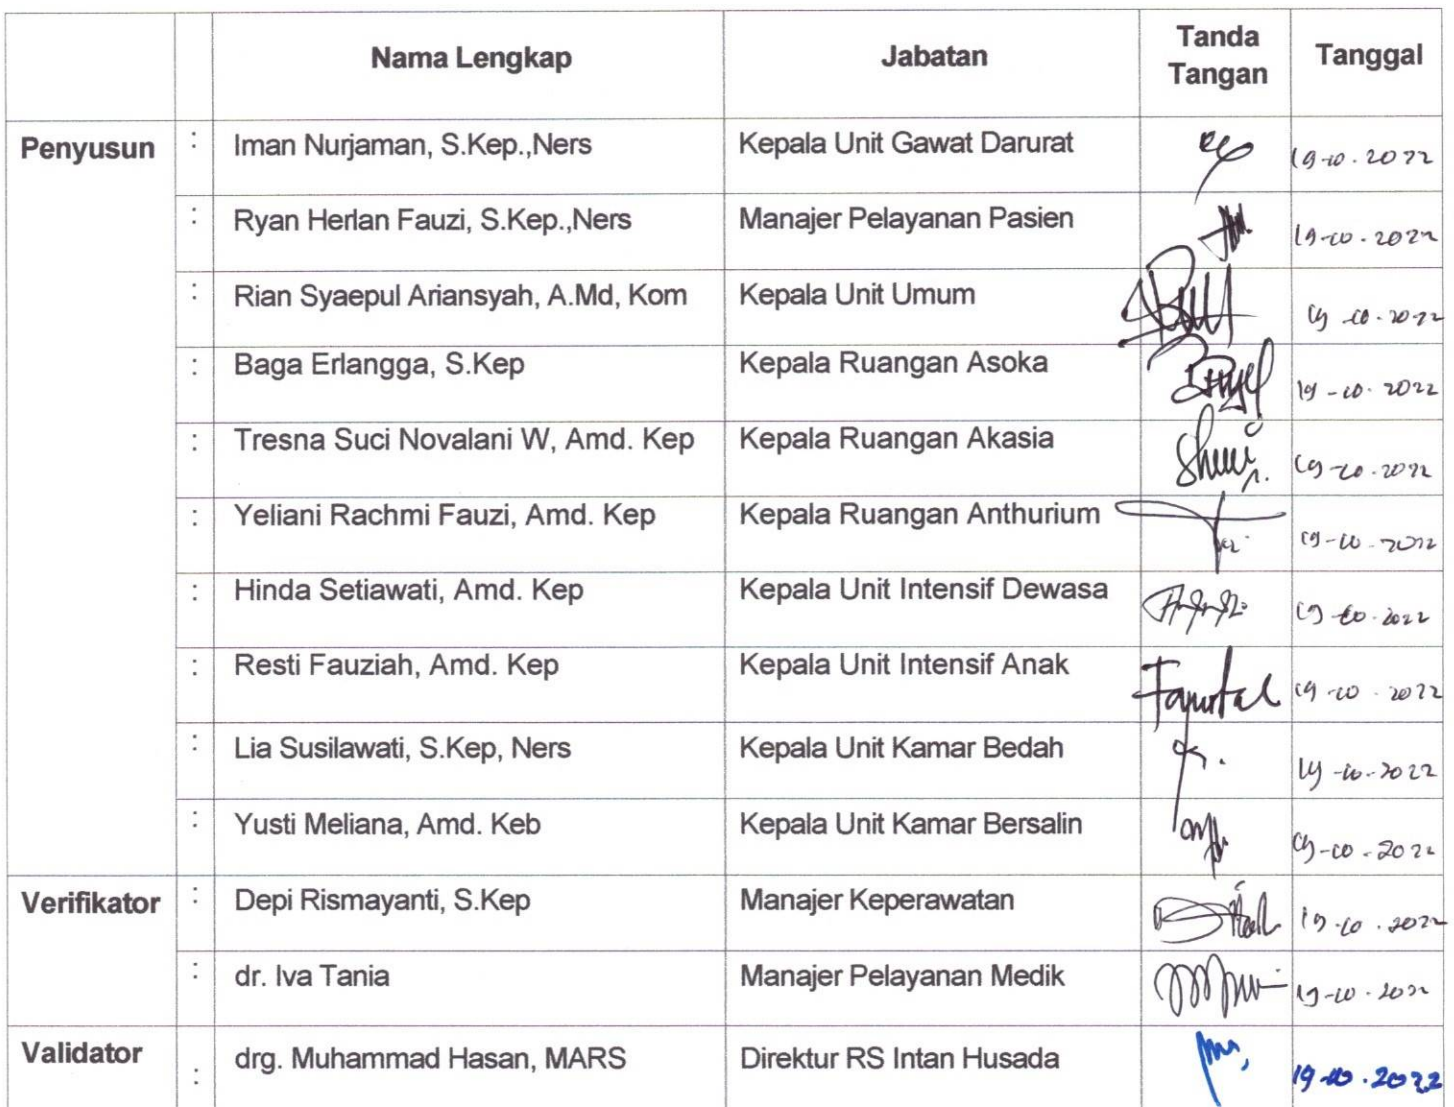 Nama Lengkap Jabatan Tanda Tangan Tanggal
Penyusun : Iman Nurjaman, S.Kep.,Ners Kepala Unit Gawat Darurat 19-10-2022
: Ryan Herlan Fauzi, S.Kep.,Ners Manajer Pelayanan Pasien 19-10-2022
: Rian Syaepul Ariansyah, A.Md, Kom Kepala Unit Umum 19-10-2022
: Baga Erlangga, S.Kep Kepala Ruangan Asoka 19-10-2022
: Tresna Suci Novalani W, Amd. Kep Kepala Ruangan Akasia 19-10-2022
: Yeliani Rachmi Fauzi, Amd. Kep Kepala Ruangan Anthurium 19-10-2022
: Hinda Setiawati, Amd. Kep Kepala Unit Intensif Dewasa 19-10-2022
: Resti Fauziah, Amd. Kep Kepala Unit Intensif Anak 19-10-2022
: Lia Susilawati, S.Kep, Ners Kepala Unit Kamar Bedah 19-10-2022
: Yusti Meliana, Amd. Keb Kepala Unit Kamar Bersalin 19-10-2022
Verifikator : Depi Rismayanti, S.Kep Manajer Keperawatan 19-10-2022
: dr. Iva Tania Manajer Pelayanan Medik 19-10-2022
Validator : drg. Muhammad Hasan, MARS Direktur RS Intan Husada 19-10-2022